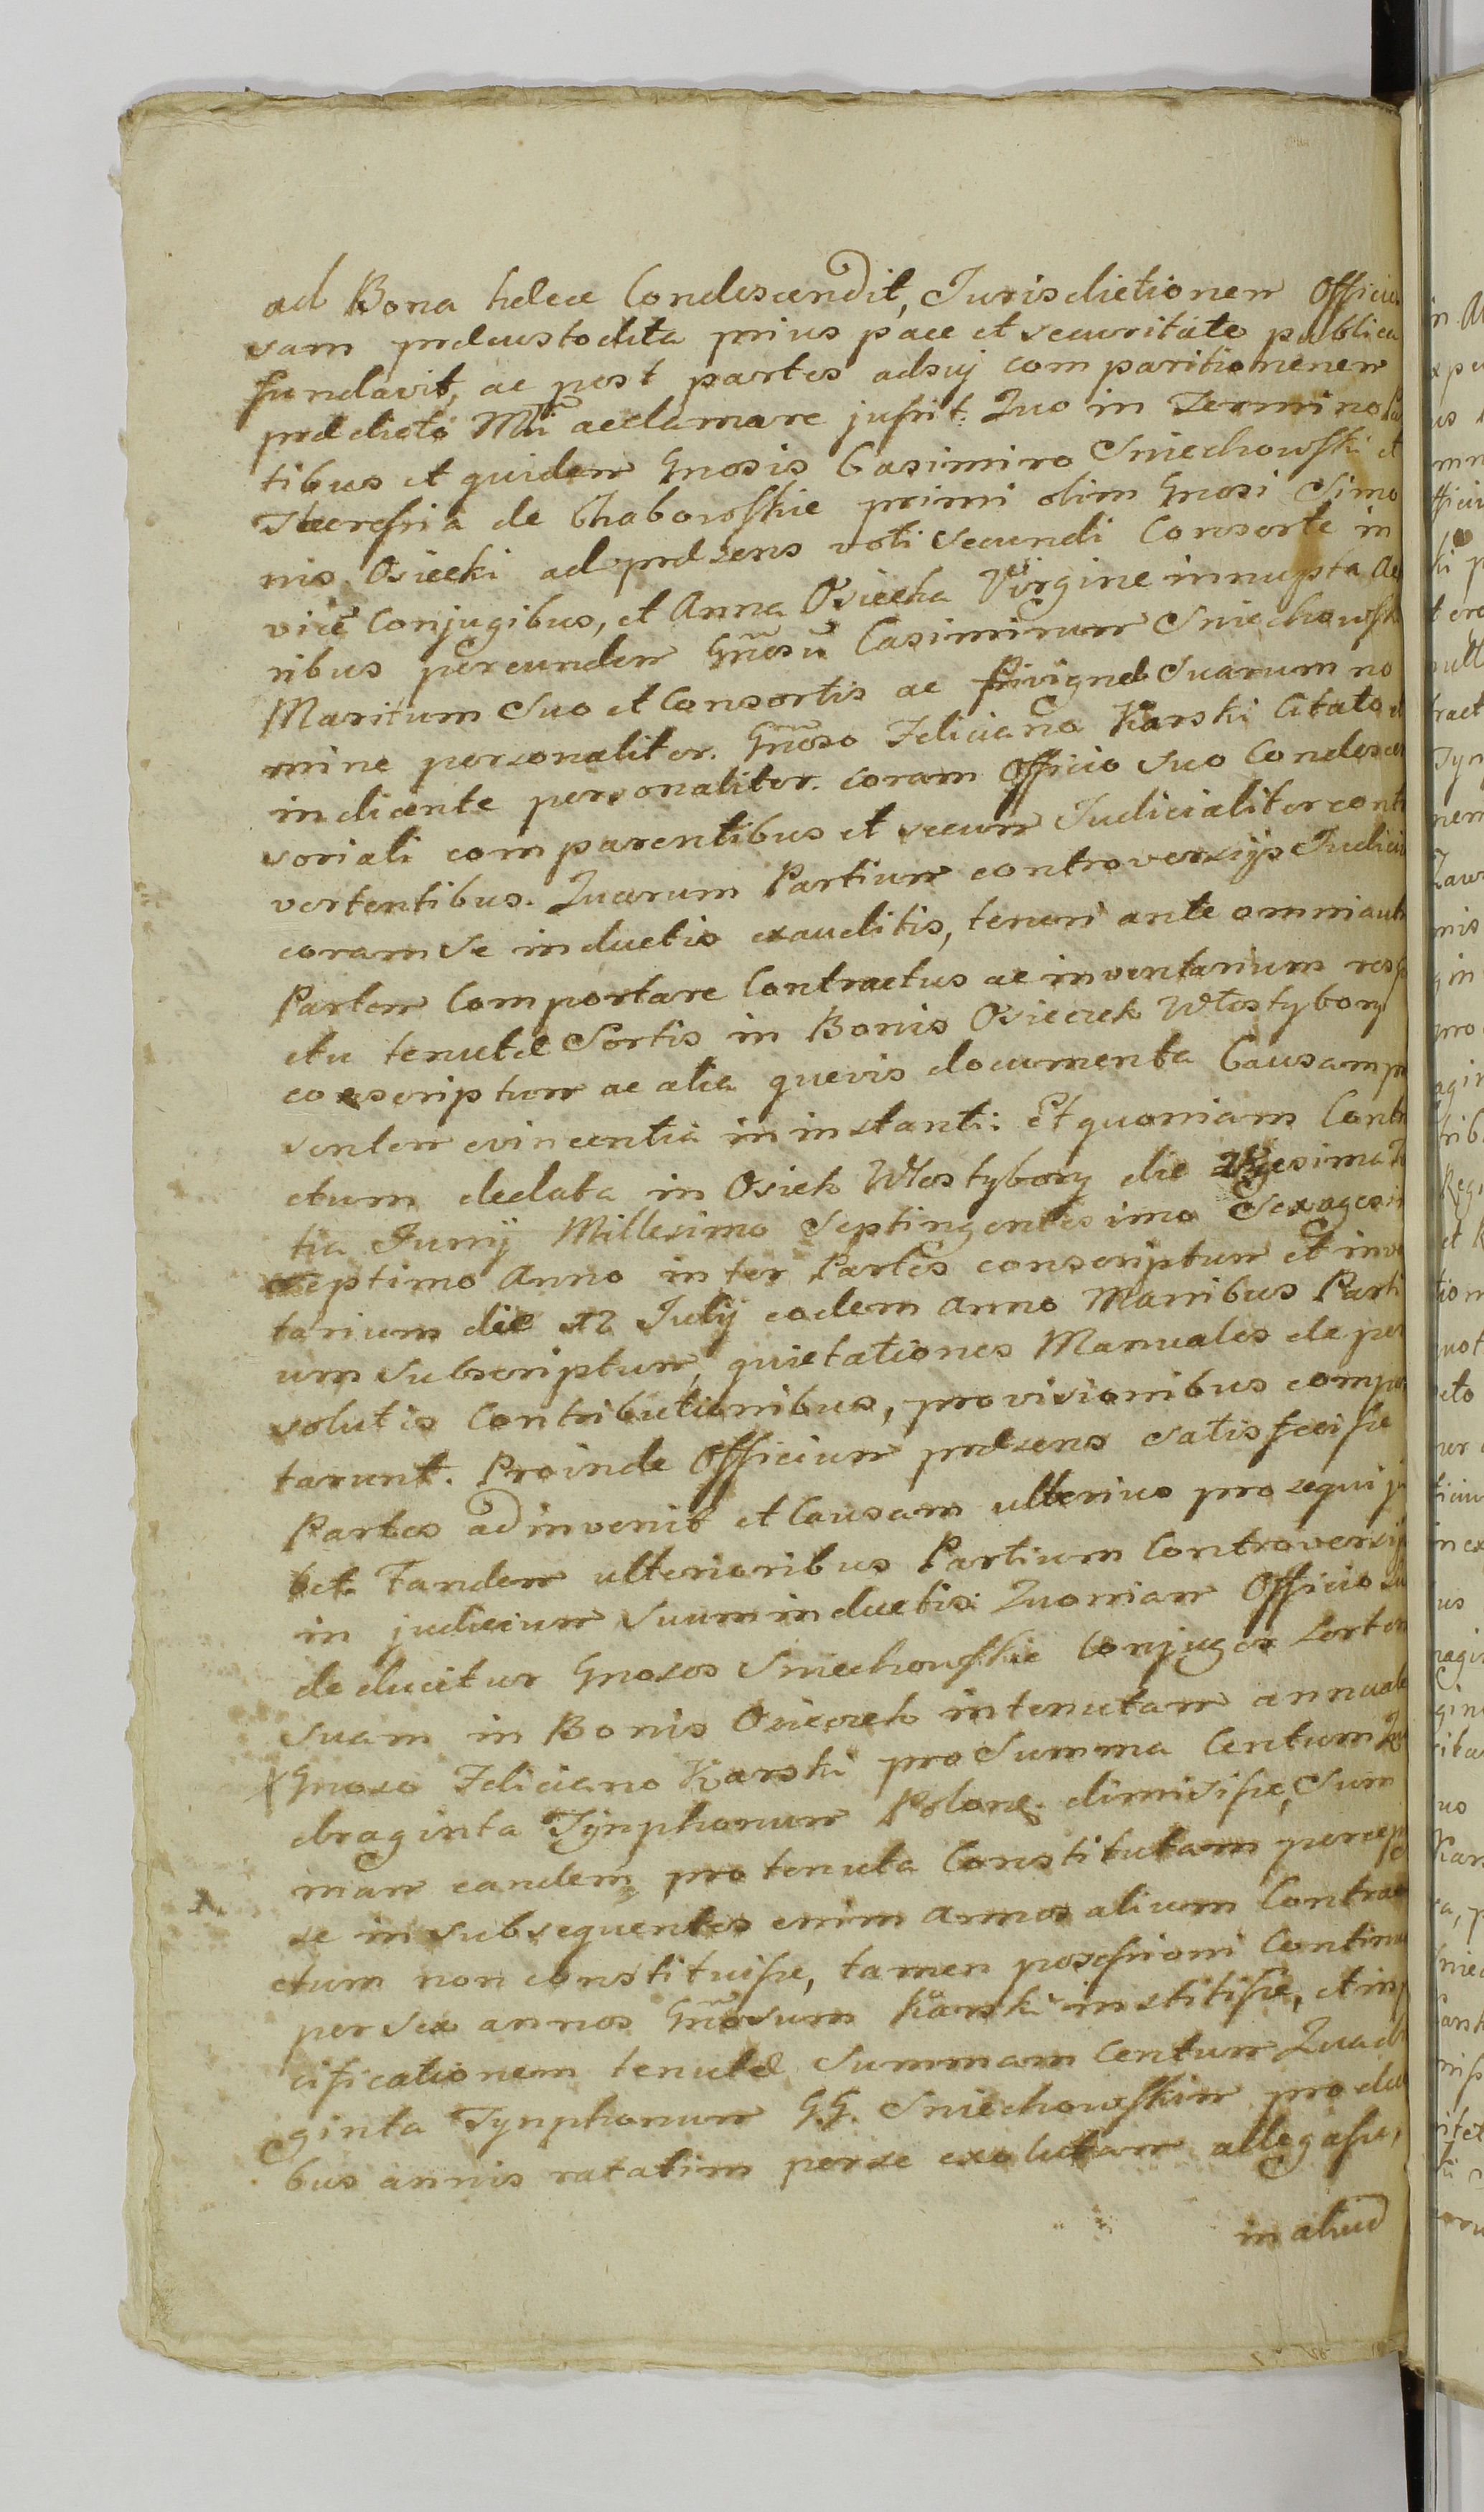 ad Bona hæce Condescendit, Jurisdictionem Officio
sam præcustodita prius pace et securitate publica
fundavit, ac post partes adsuj comparitionenem
prædicto Mtri acclamare jussit. Quo in Termino Par
tibus et quidem Gnosis Casimiro Sniechowski et
Theressia de Chabowskie primi olim Gnosi Simo
nis Osiecki ad præsens voti Secundi Consorte in
vice Conjugibus, et Anna Osiecka Virgine innupta Ac
ribus per eundem Gnosũ Casimirum Sniechowsk
Maritum Suo et Consortis ac Privignæ Suarum no
mine personaliter. Gnoso Feliciano Karski Citato et
indicente personaliter. coram Officio Suo Condescen
soriali comparentibus et secum Judicialiter contr
vertentibus. Quarum Partium controversijs Judicia
coram Se inductis exauditis, teneri ante omnia utr
Partem Comportare Contractus ac inventarium respe
ctu tenutæ Sortis in Bonis Osieczek Włostybory
conscriptum ac alia quævis documenta Causam præ
sentem evincentia in instanti: Et quoniam Contra
ctum de data in Osiek Włostybory die Vigesima Ter
tia Junij Millesimo Septingentesimo Sexagesi
Septimo Anno inter Partes conscriptum et inven
tarium die 12 July eodem anno Manibus Parti
um Subscriptum, quietationes Manuales de per
solutis Contributionibus, provisionibus compor
tarunt. Proinde Officium præsens Satisfecisse
Partes adinvenit et Causam ulterius prosequi ju
bet. Tandem ulterioribus Partium Controversijs
in judicium Suum inductis: Quoniam Officio Su
deducitur Gnosos Sniechowskie Conjuges Sortem
Suam in Bonis Osieczek in tenutam annuale
Gnoso Feliciano Karski pro Summa Centum Qua
draginta Tynphonum Polonę. dimisisse, Sum
mam eandem pro tenuta Constitutam percepi
se in subsequentes enim annos alium Contra
ctum non constituisse, tamen possessioni Continu
per Sex annos Gnosum Karski institisse, et in sp
cificationem tenutæ Summam Centum Quadra
ginta Tynphonum G.G. Sniechowskim pro duo
bus annis ratatim per se exolutam allegasse,
in aliud